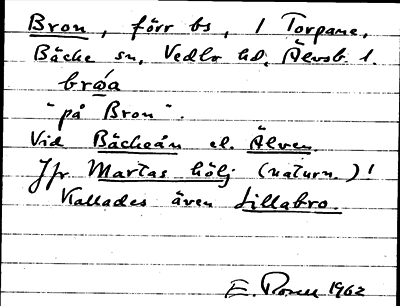 Bron, förr bs, 1 Torpane,
Bäcke sn, Vedbo hd, Älvsb. l.
brǿa
"på Bron".
Vid Bäckeån el. Älven
Jfr Martas hölj (naturn.)!
Kallades även Lillabro.
E. 1962